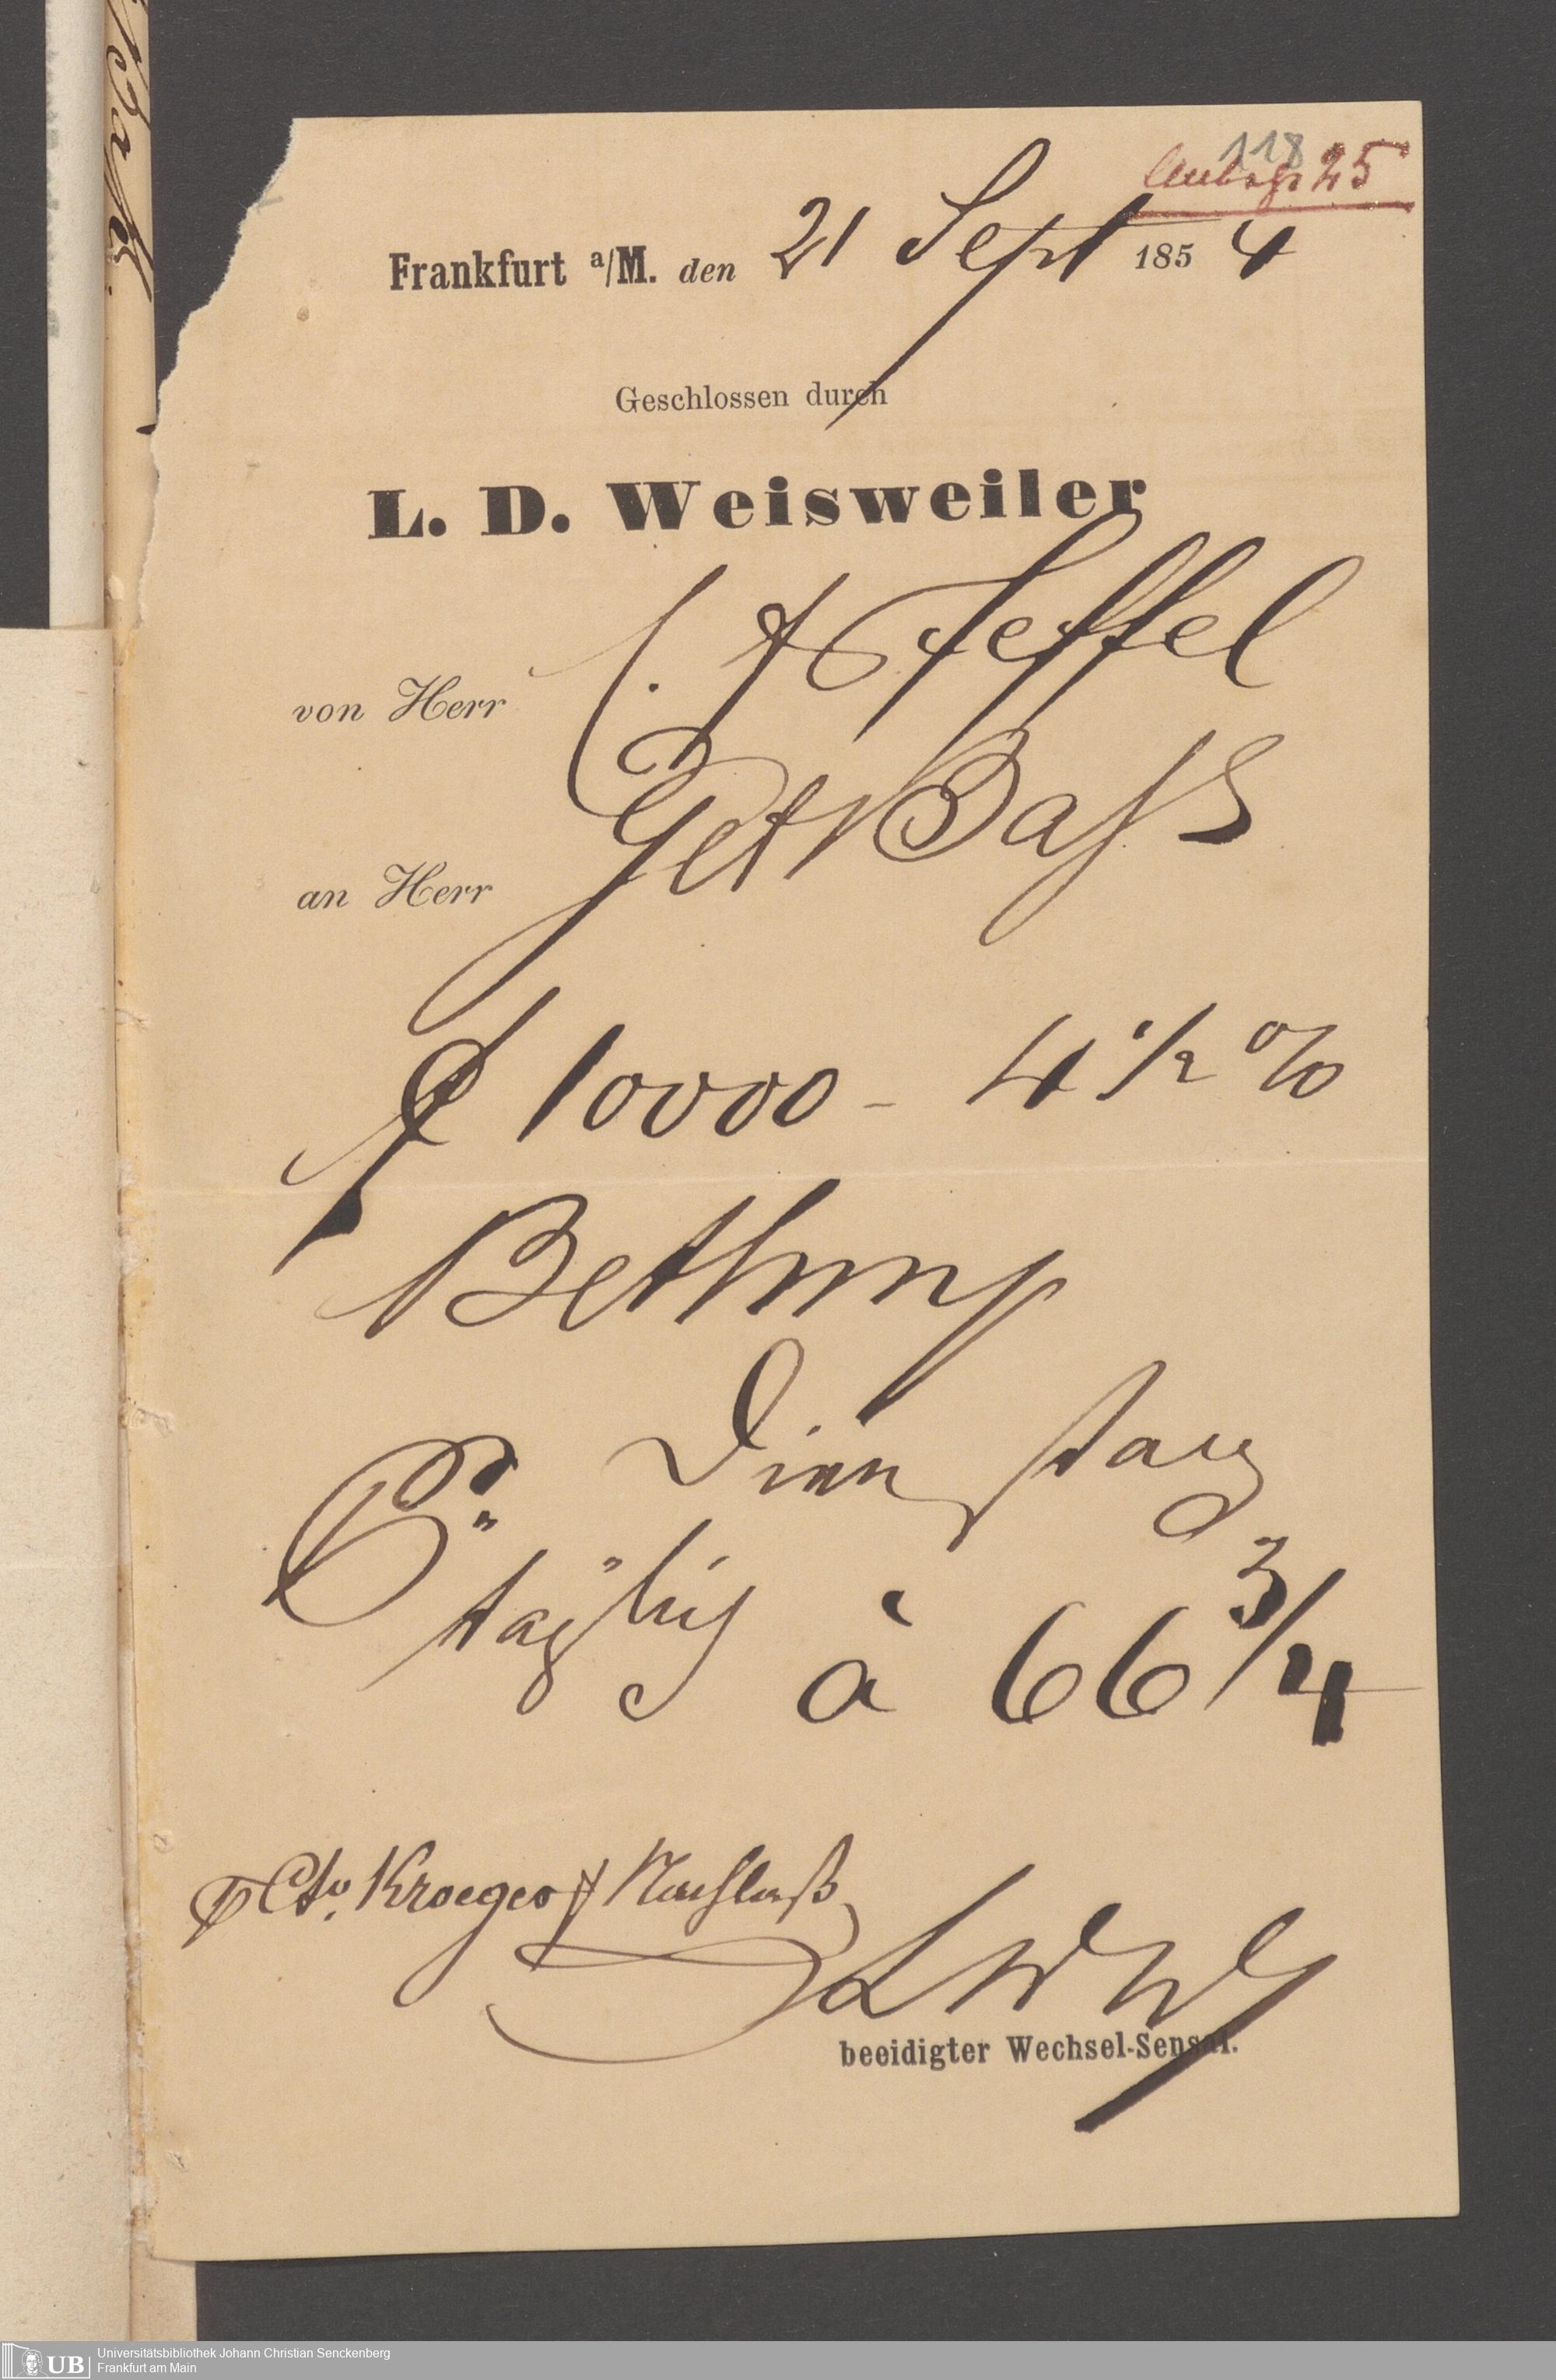 118
25
Frankfurt a/M. den 21 Sept 1854
Geschlossen durch
L. D. Weisweiler
von Herr
an Herr Gebr Bass
f 10000 - 4 1/2 %
Bethm
Dienstag
täglich à 66 3/4
Cto. Kroeger Nachlaß
LDW
beeidigter Wechsel-Sensal.
UB Universitätsbibliothek Johann Christian Senckenberg
Frankfurt am Main